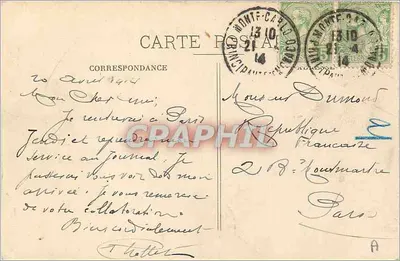 CARTE POSTALE
MONTE-CARLO
13 10
21 - 4
14
MONTE-CARLO
13 10
21 - 4
14
PRINCIPAUTÉ
CORRESPONDANCE
20 avril 1914
Mon Cher ami,
Je rentrerai à Paris
Jeudi et reprendrai
service au Journal. Je
passerai vous voir dès mon
arrivée. Je vous remercie
de votre collaboration.
Bien cordialement
Monsieur Dumond
République
Française
2 Bd Montmartre
Paris
CPAPHIL
A